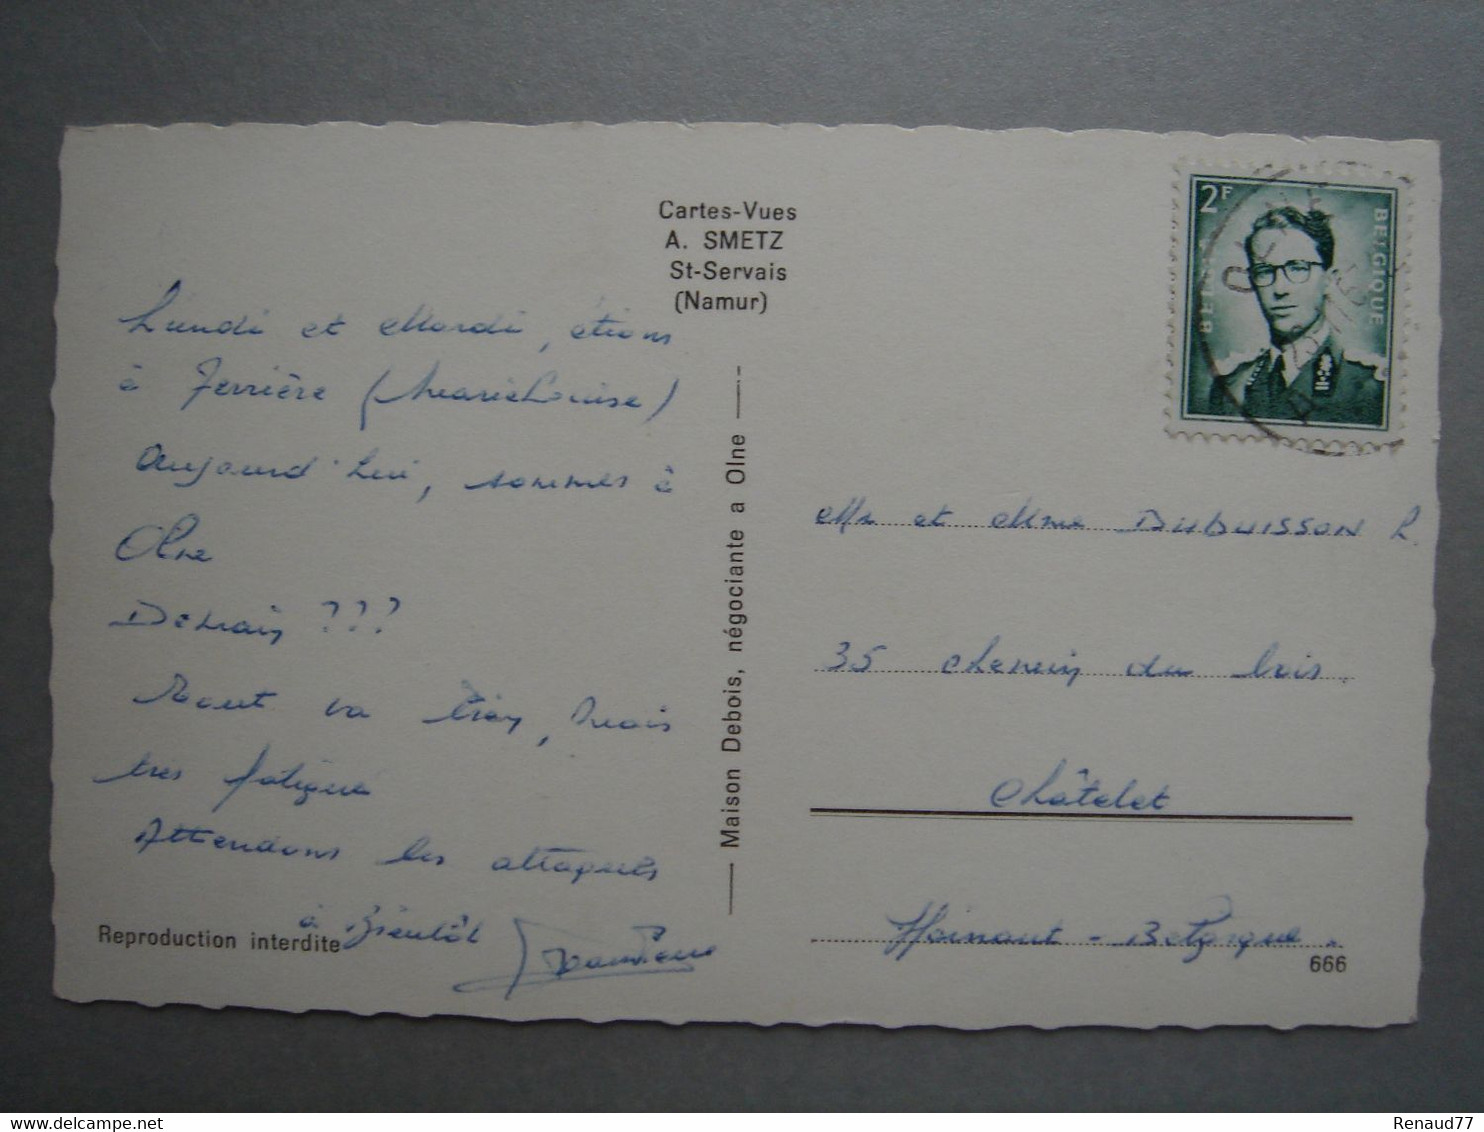 Cartes-Vues
A. SMETZ
St-Servais
(Namur)
Lundi et Mardi, étions
à Ferrière (Marie Louise)
Aujourd'hui, sommes à
Olne
Demain ???
Tout va bien, mais
très fatigué
Attendons les attaques
à Bientôt
Reproduction interdite
Maison Debois, négociante a Olne
2F
BELGIQUE
BELGIË
OLNE
Mr et Mme DUBUISSON R.
35 chemin du bois.
Châtelet
Hainaut - Belgique.
666
Renaud77